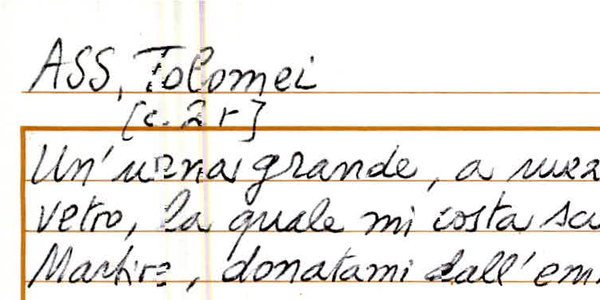 ASS, Tolomei
[c. 2 r]
Un'urna grande, a
vetro, la quale mi costa
Martire, donatami dall'